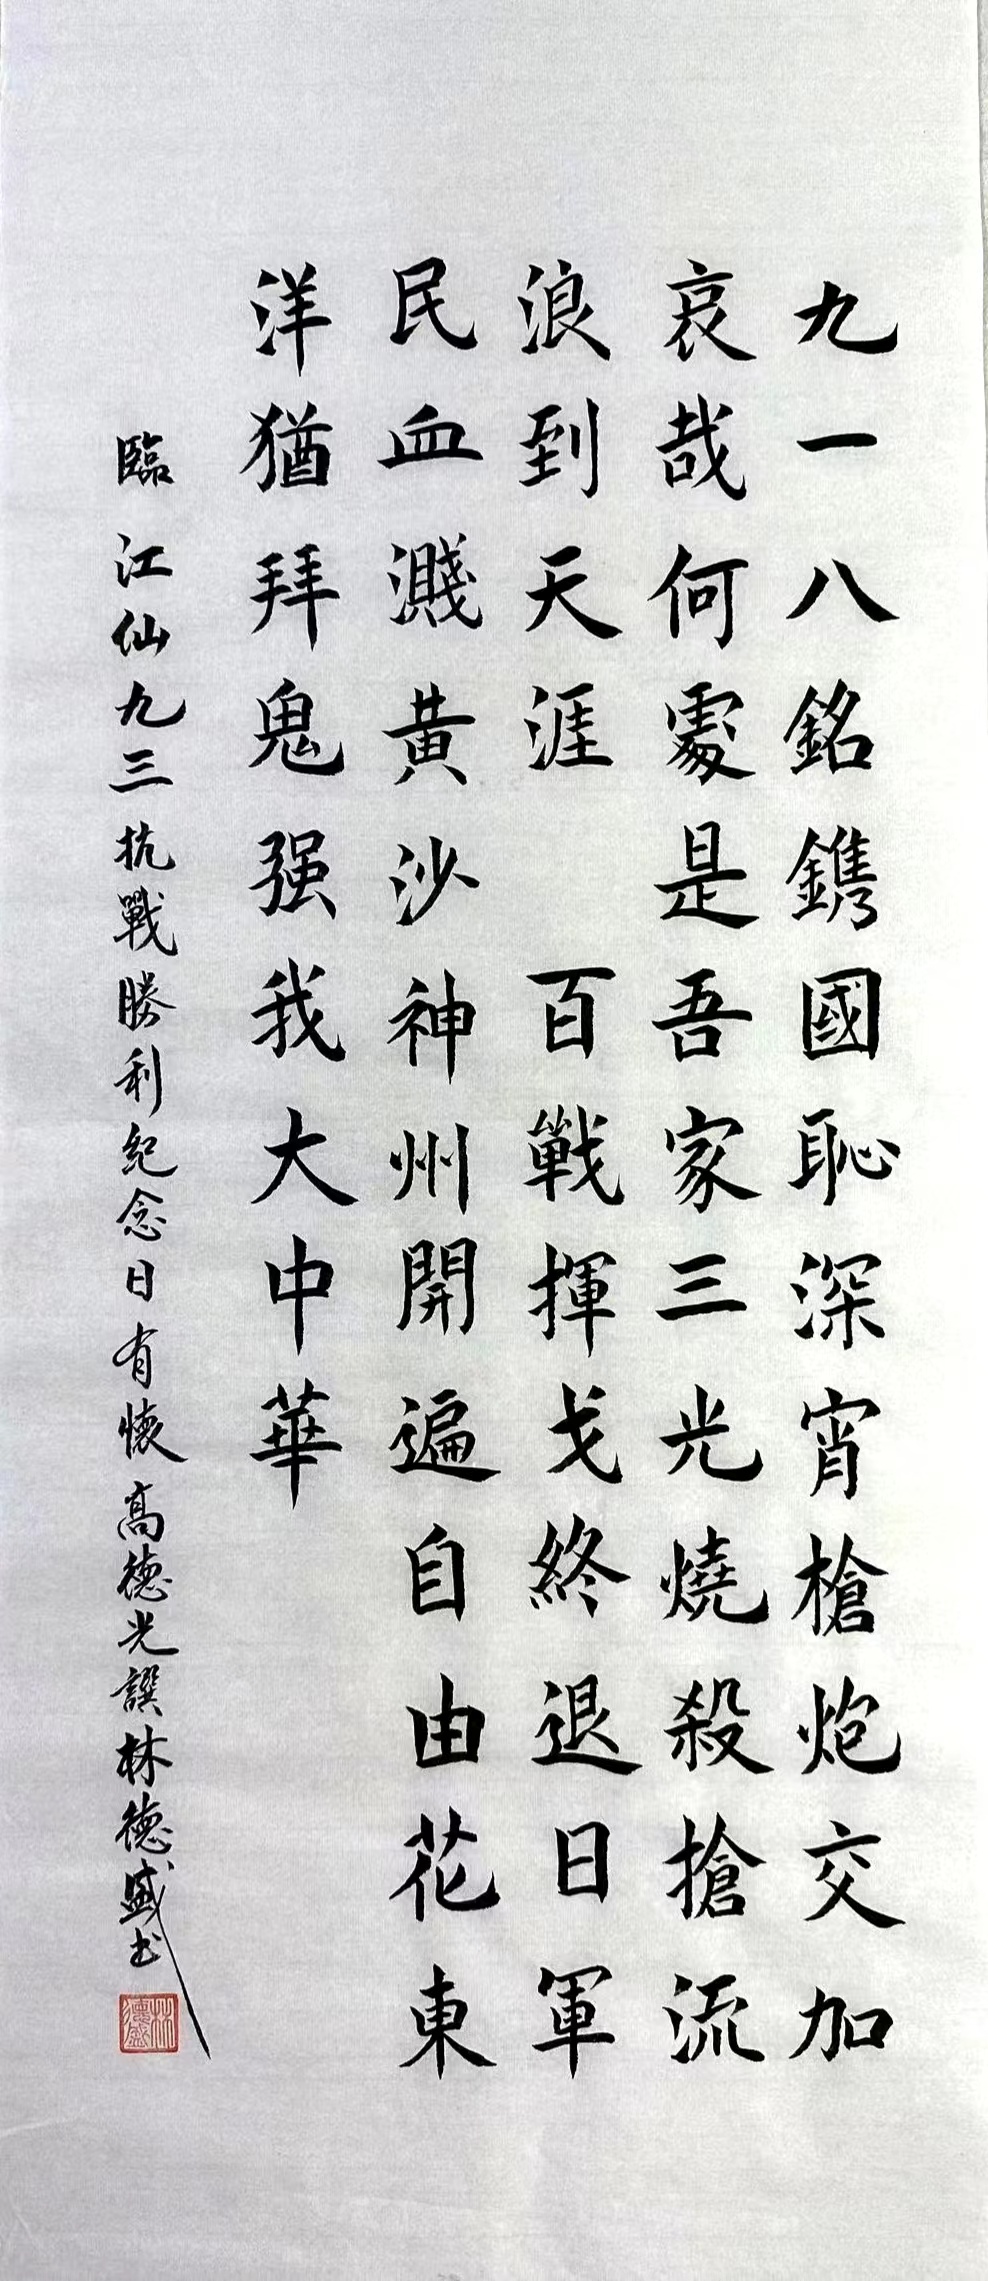 九一八銘鐫國恥深宵槍炮交加
哀哉何處是吾家三光燒殺搶流
浪到天涯 百戰揮戈終退日軍
民血濺黃沙神州開遍自由花東
洋猶拜鬼强我大中華
臨江仙九三抗戰勝利紀念日有懷高德光譔林德盛书
林德盛